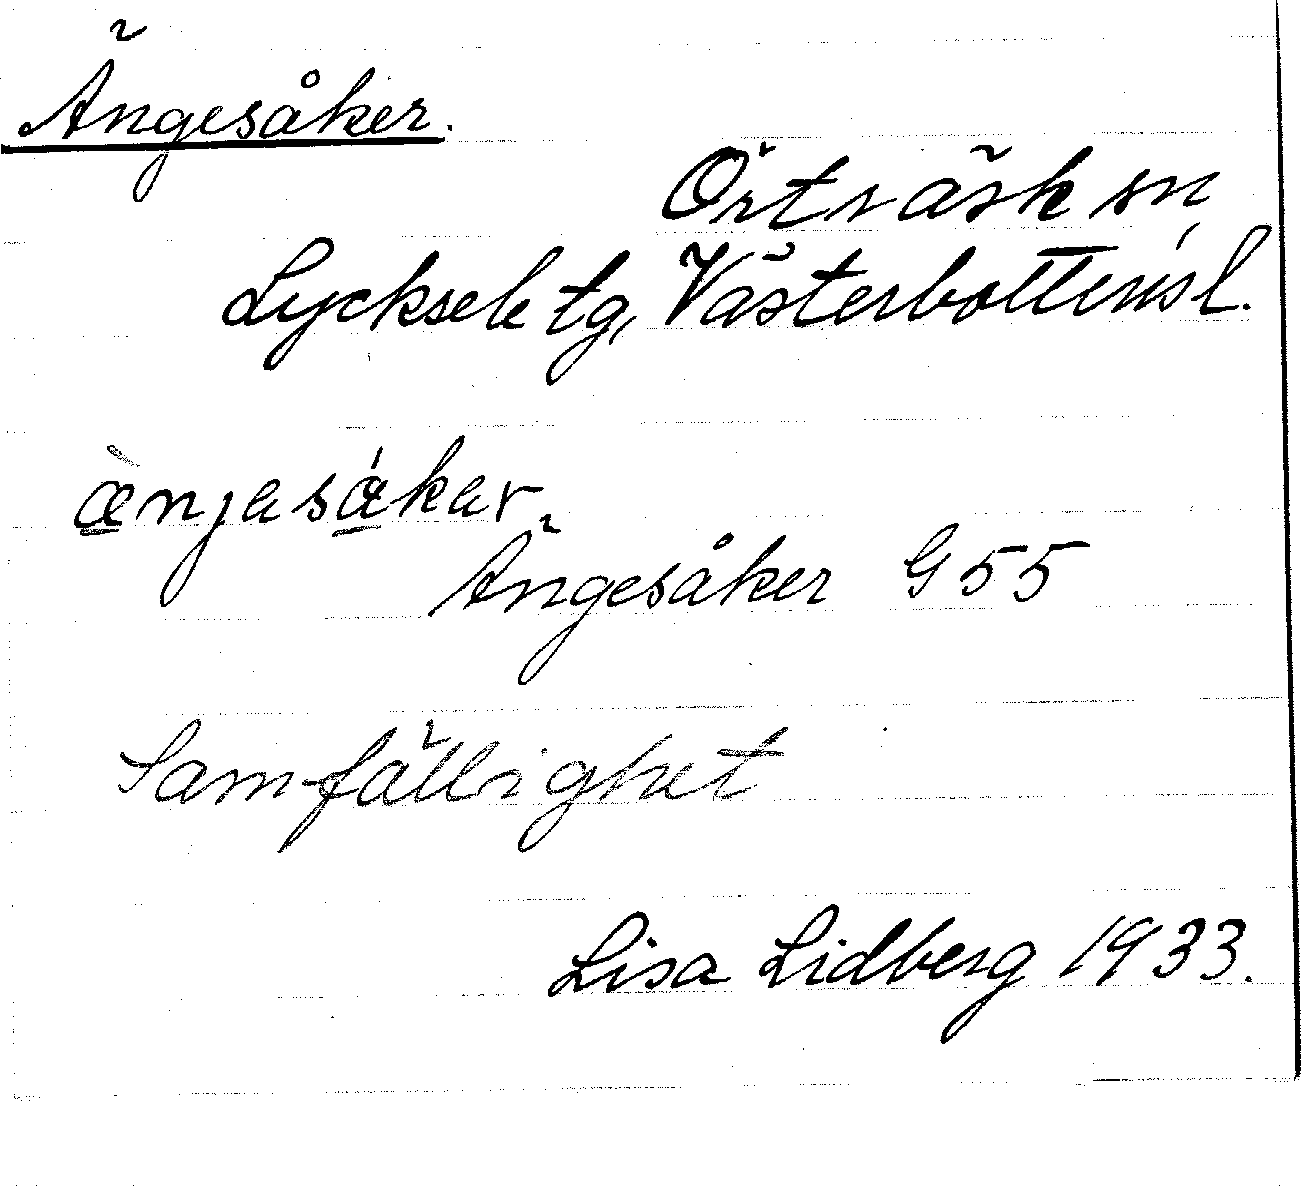 Ängesåker.
Örträsk sn
Lycksele tg, Västerbottens l.
æ̀njasåkar
Ängesåker G 55
Samfällighet
Lisa Lidberg 1933.